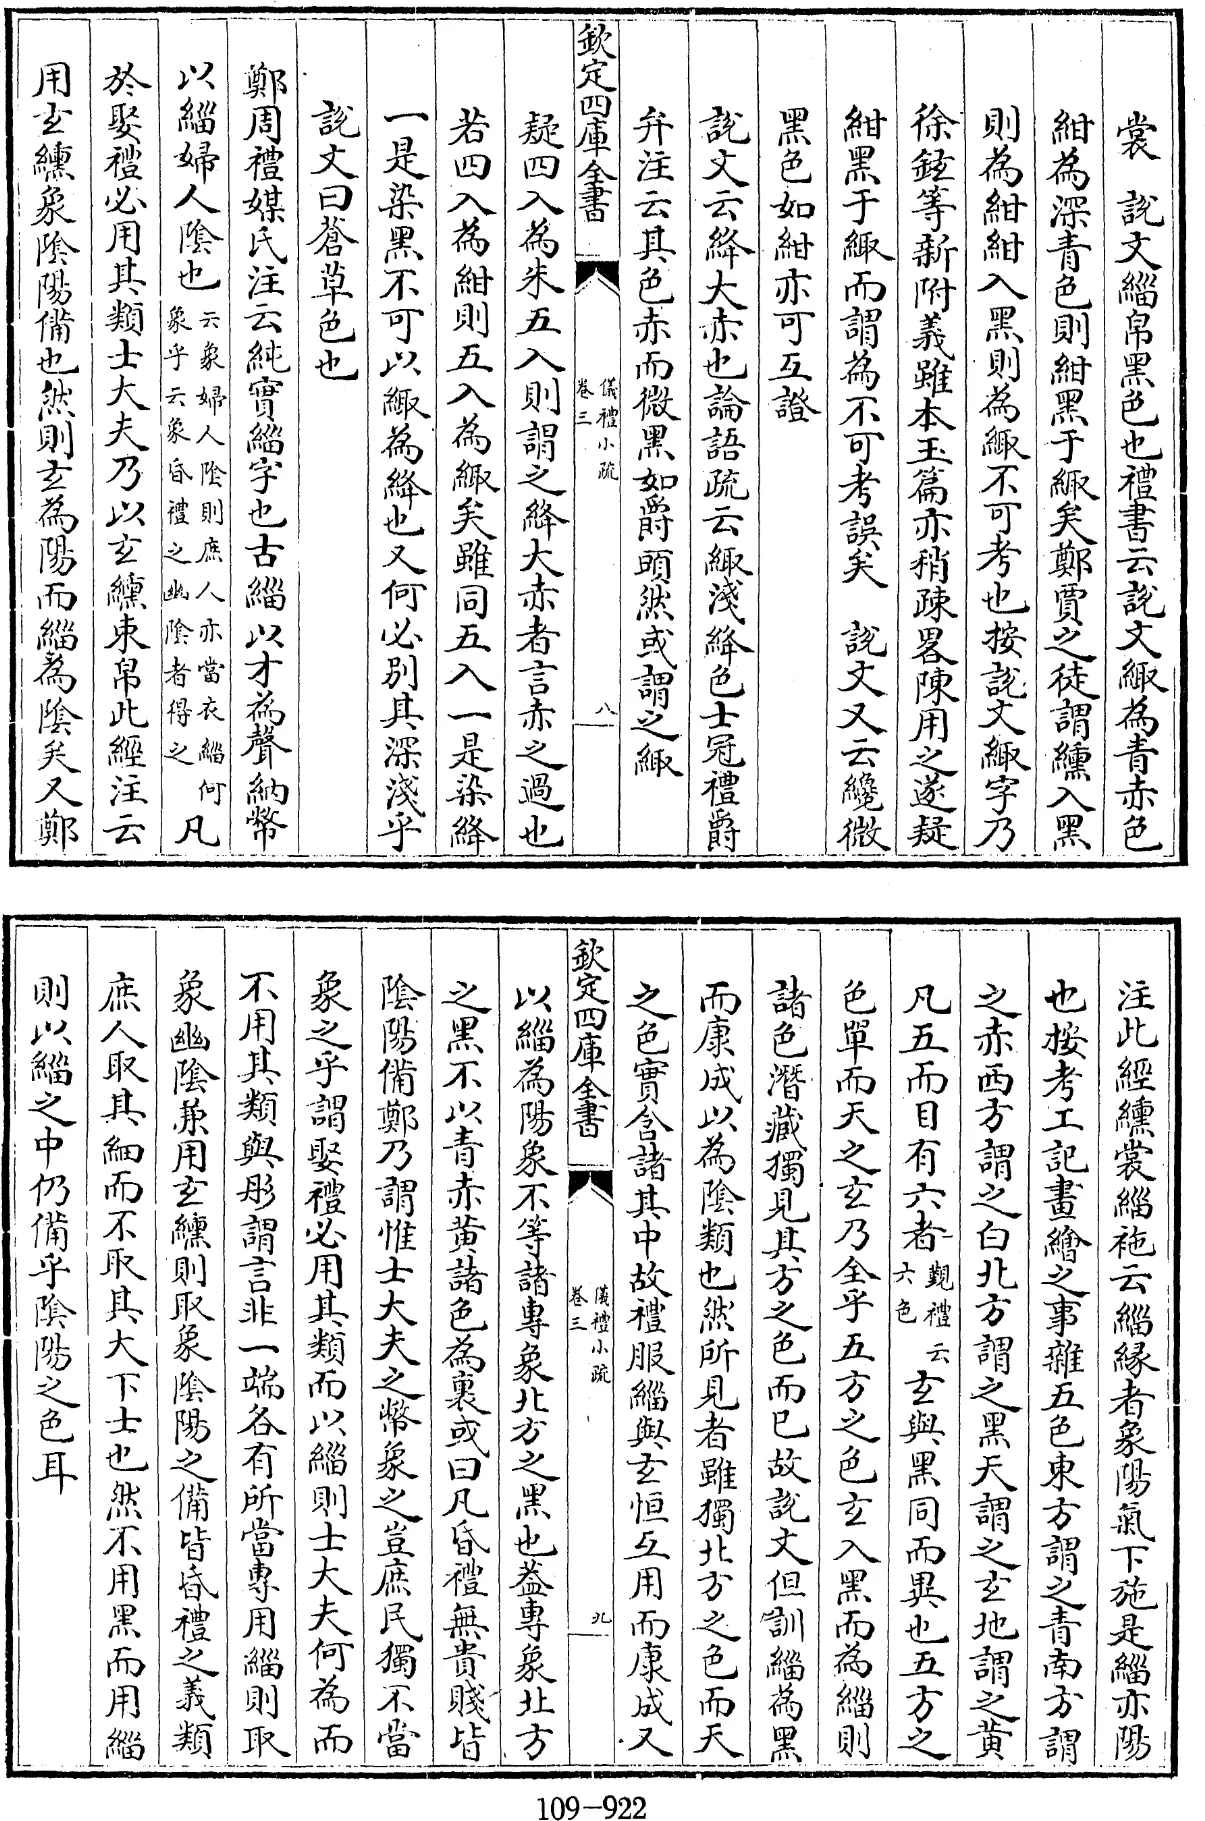 裳　說文緇帛黑色也禮書云說文緅為青赤色
紺為深青色則紺黑于緅矣鄭賈之徒謂纁入黑
則為紺紺入黑則為緅不可考也按說文緅字乃
徐鉉等新附義雖本玉篇亦稍疎畧陳用之遂疑
紺黑于緅而謂為不可考誤矣　說文又云纔微
黑色如紺亦可互證
說文云絳大赤也論語疏云緅淺絳色士冠禮爵
弁注云其色赤而微黑如爵頭然或謂之緅
欽定四庫全書
儀禮小疏
卷三
八
疑四入為朱五入則謂之絳大赤者言赤之過也
若四入為紺則五入為緅矣雖同五入一是染絳
一是染黑不可以緅為絳也又何必別其深淺乎
說文曰蒼草色也
鄭周禮媒氏注云純實緇字也古緇以才為聲納幣
以緇婦人陰也云象婦人陰則庶人亦當衣緇何象乎云象昏禮之幽陰者得之凡
於娶禮必用其類士大夫乃以玄纁束帛此經注云
用玄纁象陰陽備也然則玄為陽而緇為陰矣又鄭
注此經纁裳緇袘云緇緣者象陽氣下施是緇亦陽
也按考工記畫繪之事雜五色東方謂之青南方謂
之赤西方謂之白北方謂之黑天謂之玄地謂之黃
凡五而目有六者覲禮云六色玄與黑同而異也五方之
色單而天之玄乃全乎五方之色玄入黑而為緇則
諸色潛藏獨見其方之色而已故說文但訓緇為黑
而康成以為陰類也然所見者雖獨北方之色而天
之色實含諸其中故禮服緇與玄恒互用而康成又
欽定四庫全書
儀禮小疏
卷三
九
以緇為陽象不等諸專象北方之黑也蓋專象北方
之黑不以青赤黃諸色為裏或曰凡昏禮無貴賤皆
陰陽備鄭乃謂惟士大夫之幣象之豈庶民獨不當
象之乎謂娶禮必用其類而以緇則士大夫何為而
不用其類與彤謂言非一端各有所當專用緇則取
象幽陰兼用玄纁則取象陰陽之備皆昏禮之義類
庶人取其細而不取其大下士也然不用黑而用緇
則以緇之中仍備乎陰陽之色耳
109-922